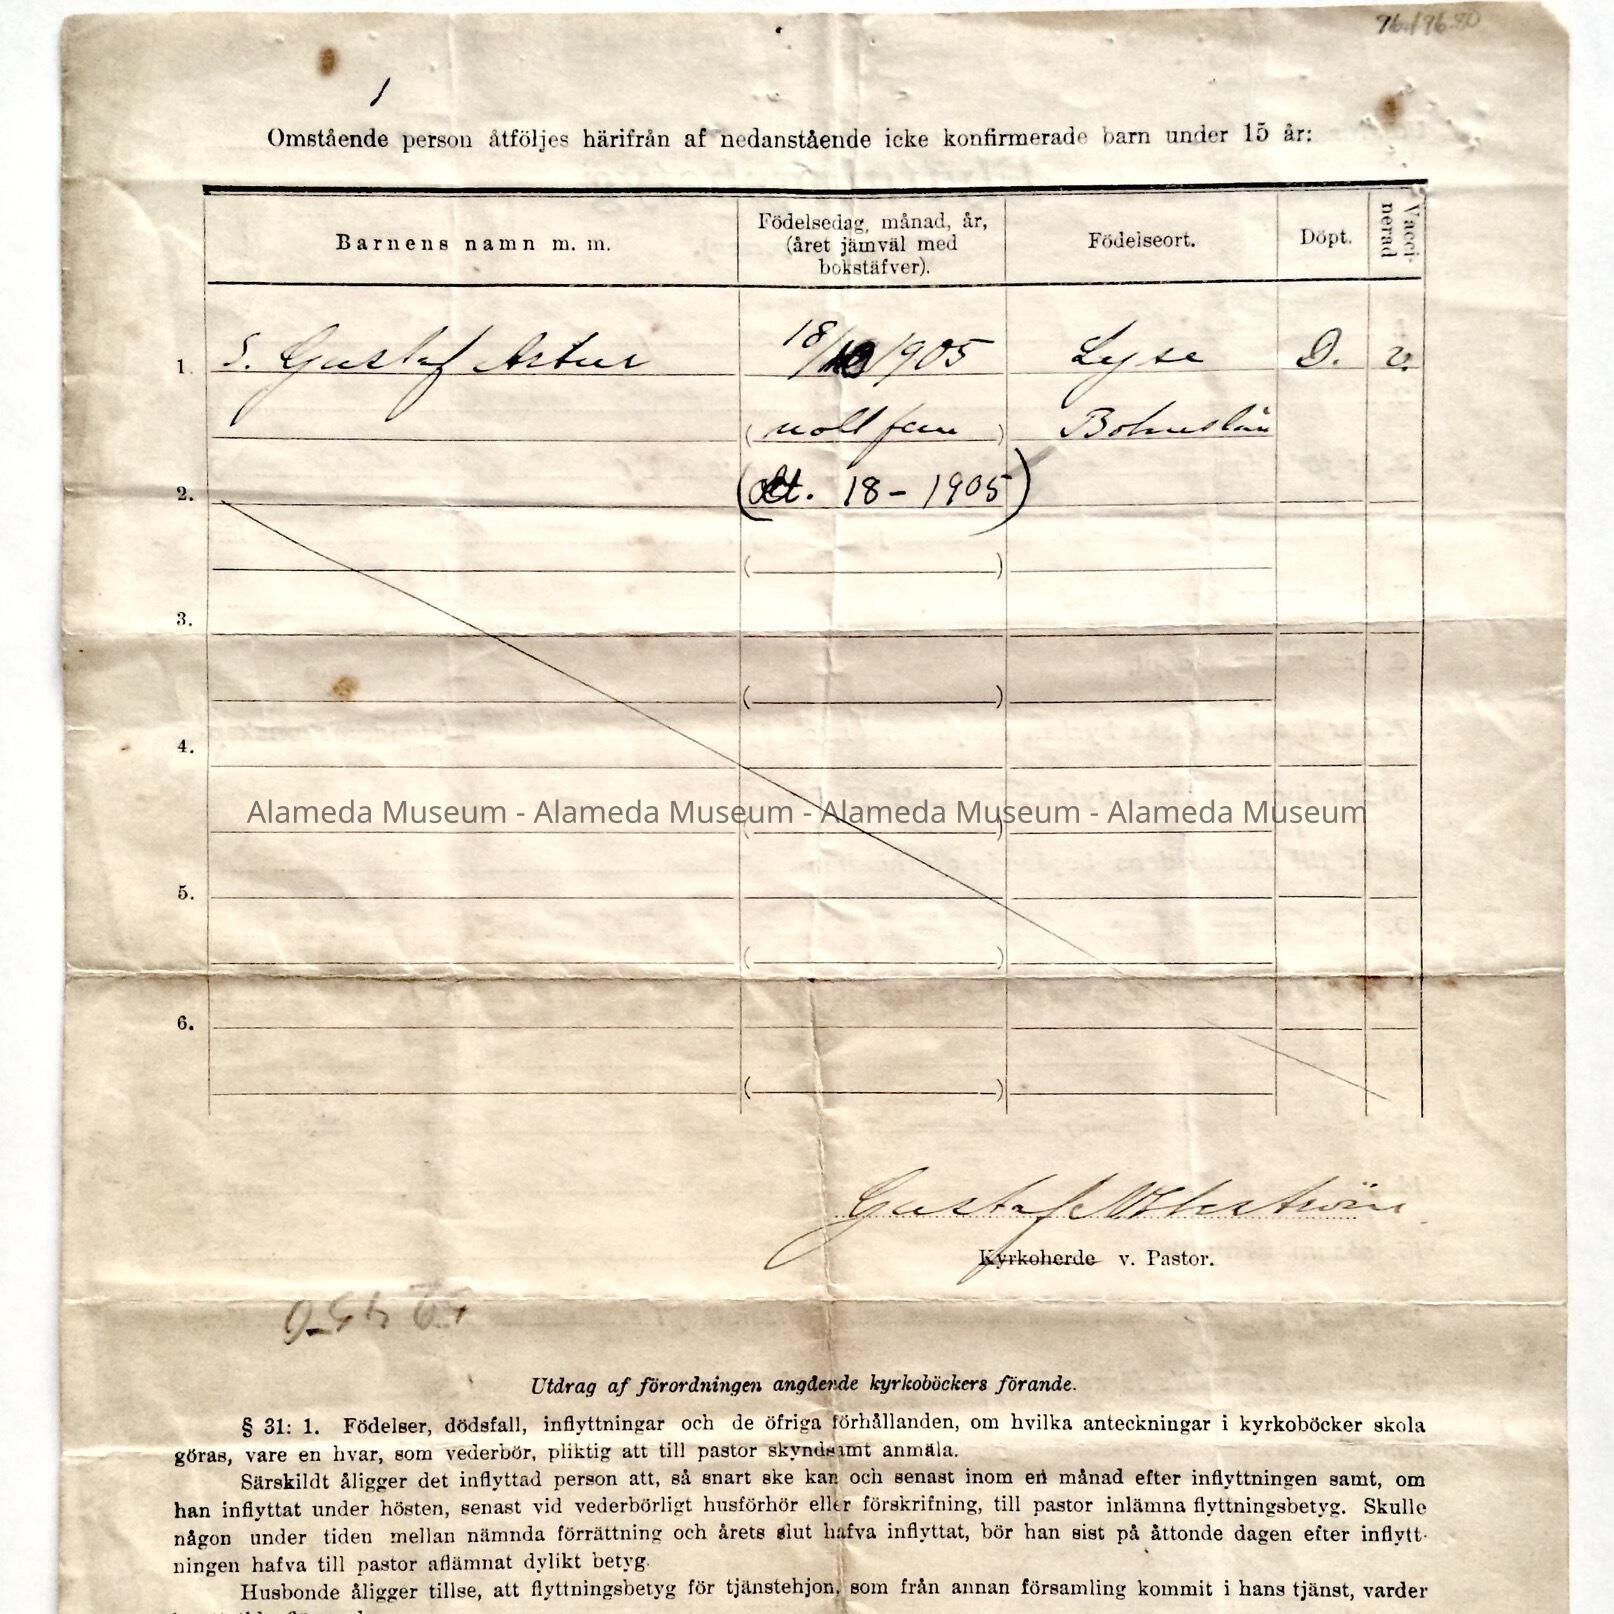 96.196.80
1
Omstående person åtföljes härifrån af nedanstående icke konfirmerade barn under 15 år:
Barnens namn m. m.
Födelsedag, månad, år,
(året jämväl med
bokstäfver).
Födelseort.
Döpt.
Vacci-
nerad
1. S. Gustaf Artur 18/10 1905 Lyse D. v.
(noll fem) Bohuslän
2. (Oct. 18 - 1905)
3.
4.
Alameda Museum - Alameda Museum - Alameda Museum - Alameda Museum
5.
6.
Gustaf
Kyrkoherde v. Pastor.
Utdrag af förordningen angående kyrkoböckers förande.
§ 31: 1. Födelser, dödsfall, inflyttningar och de öfriga förhållanden, om hvilka anteckningar i kyrkoböcker skola
göras, vare en hvar, som vederbör, pliktig att till pastor skyndsamt anmäla.
Särskildt åligger det inflyttad person att, så snart ske kan och senast inom en månad efter inflyttningen samt, om
han inflyttat under hösten, senast vid vederbörligt husförhör eller förskrifning, till pastor inlämna flyttningsbetyg. Skulle
någon under tiden mellan nämnda förrättning och årets slut hafva inflyttat, bör han sist på åttonde dagen efter inflytt-
ningen hafva till pastor aflämnat dylikt betyg.
Husbonde åligger tillse, att flyttningsbetyg för tjänstehjon, som från annan församling kommit i hans tjänst, varder